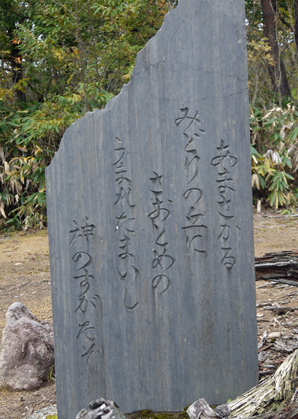 あまさかる
みどりの丘に
さおとめの
うまれたまいし
神のすがたそ